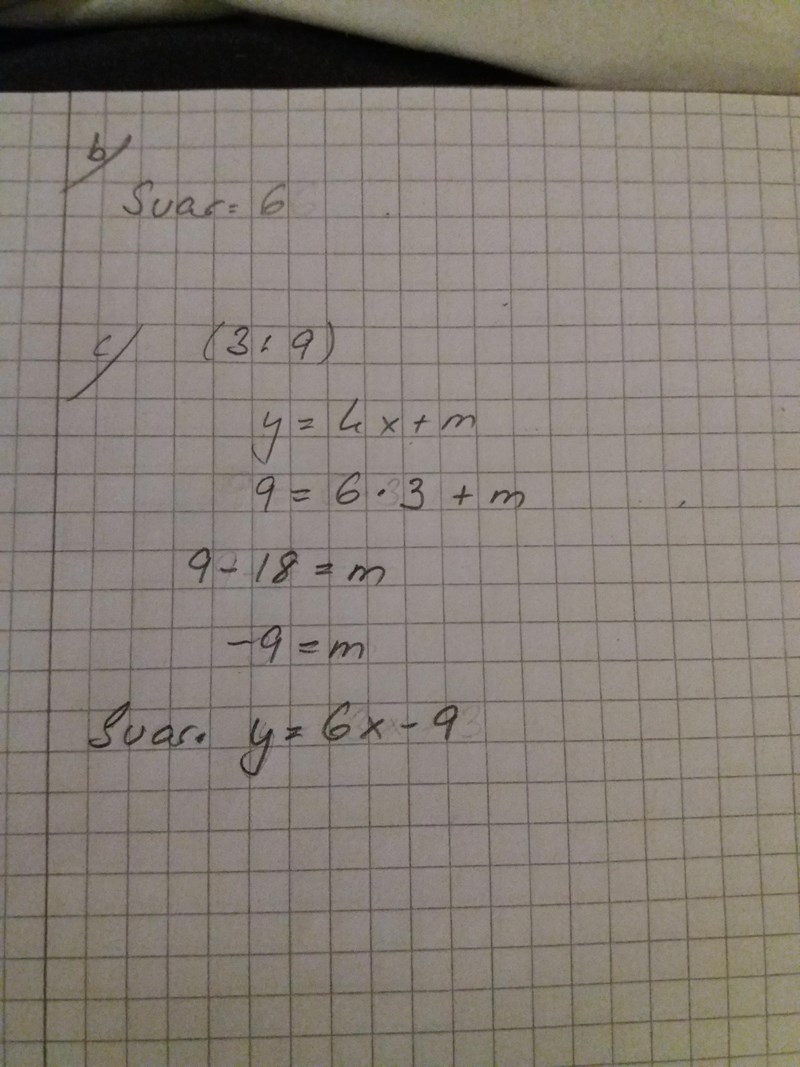 b/
Svar: 6
c/ (3; 9)
y = kx + m
9 = 6 · 3 + m
9 - 18 = m
-9 = m
Svar. y = 6x - 9